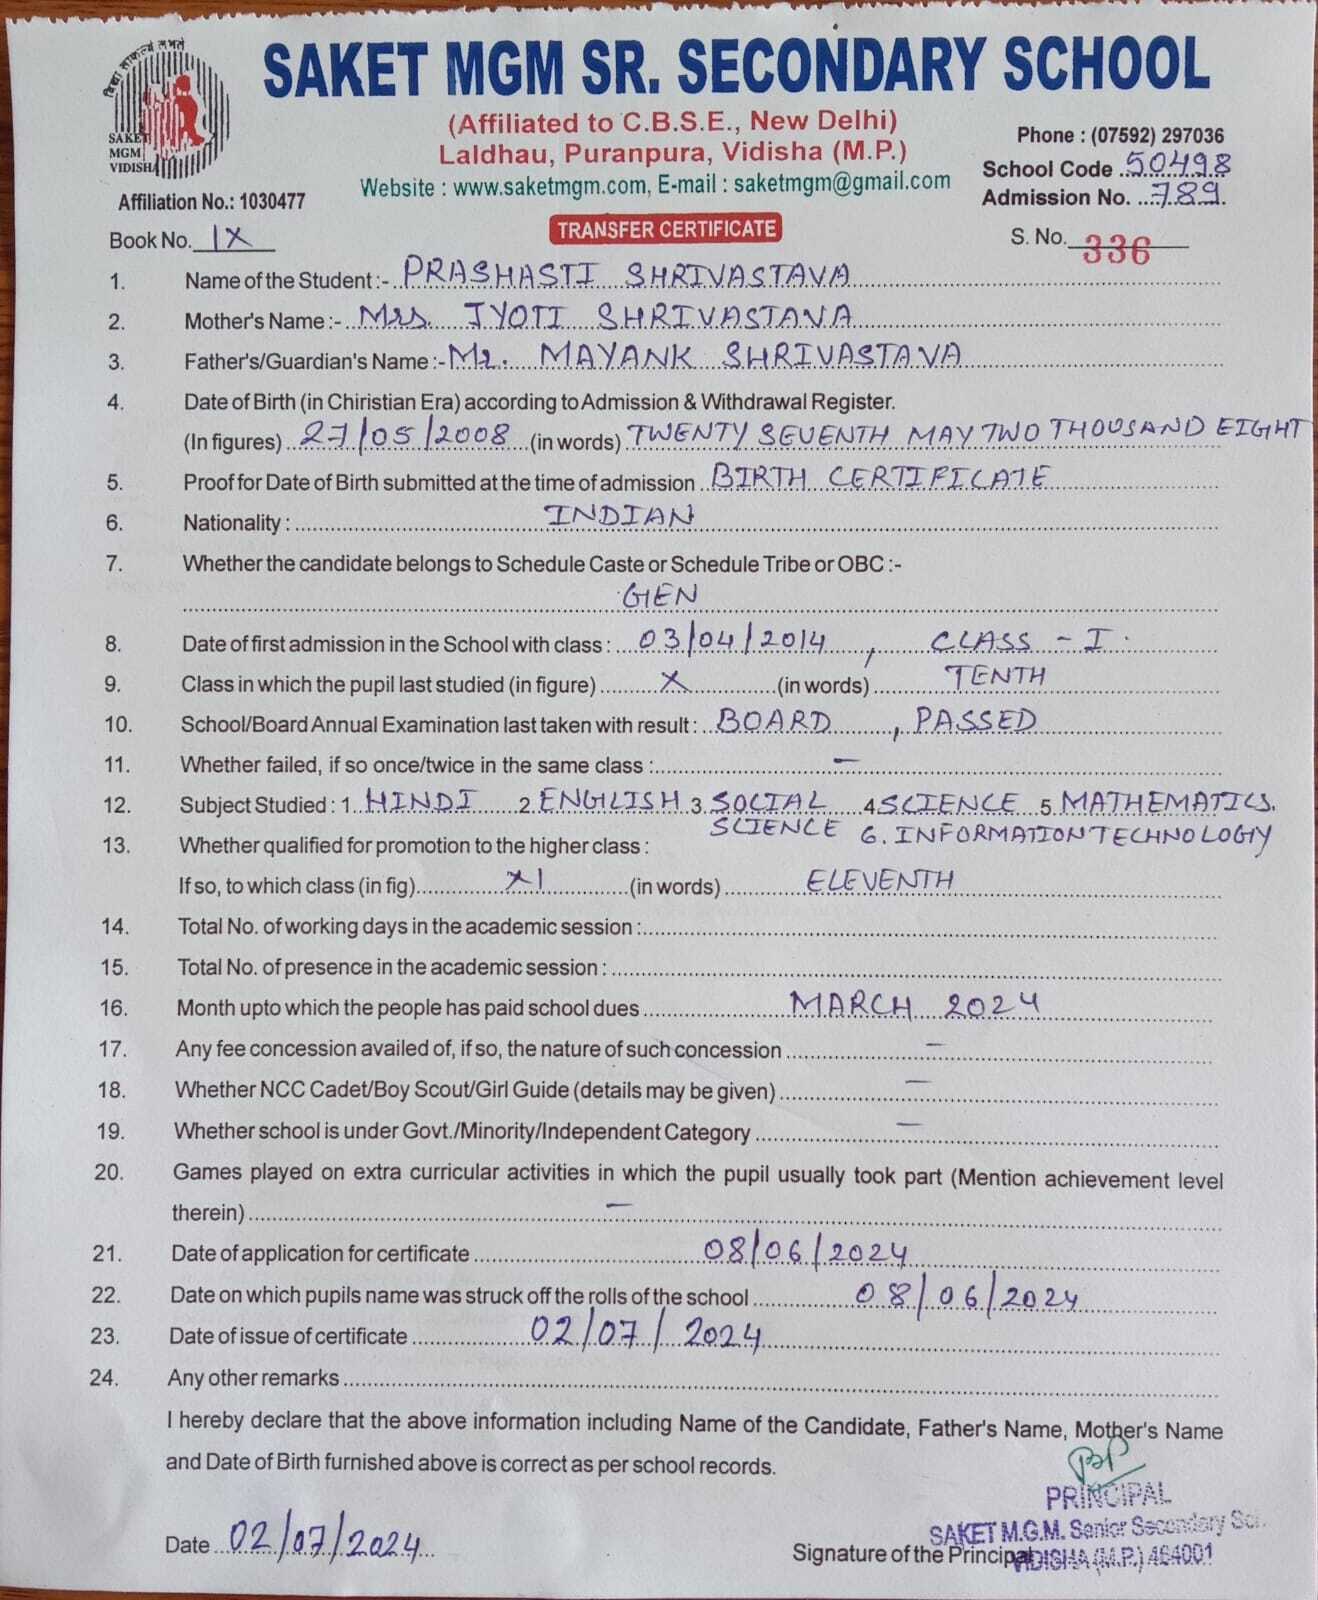 विद्या लाकल्यं लभते
SAKET
MGM
VIDISHA
SAKET MGM SR. SECONDARY SCHOOL
(Affiliated to C.B.S.E., New Delhi)
Laldhau, Puranpura, Vidisha (M.P.)
Website : www.saketmgm.com, E-mail : saketmgm@gmail.com
Phone : (07592) 297036
School Code 50498
Admission No. 789
Affiliation No.: 1030477
Book No. IX
TRANSFER CERTIFICATE
S. No. 336
1. Name of the Student :- PRASHASTI SHRIVASTAVA
2. Mother's Name :- Mrs. JYOTI SHRIVASTAVA
3. Father's/Guardian's Name :- Mr. MAYANK SHRIVASTAVA
4. Date of Birth (in Chiristian Era) according to Admission & Withdrawal Register.
(In figures) 27/05/2008 (in words) TWENTY SEVENTH MAY TWO THOUSAND EIGHT
5. Proof for Date of Birth submitted at the time of admission BIRTH CERTIFICATE
6. Nationality : INDIAN
7. Whether the candidate belongs to Schedule Caste or Schedule Tribe or OBC :-
GEN
8. Date of first admission in the School with class : 03/04/2014, CLASS - I.
9. Class in which the pupil last studied (in figure) X (in words) TENTH
10. School/Board Annual Examination last taken with result : BOARD, PASSED
11. Whether failed, if so once/twice in the same class : -
12. Subject Studied : 1. HINDI 2. ENGLISH 3. SOCIAL 4 SCIENCE 5. MATHEMATICS.
SCIENCE 6. INFORMATION TECHNOLOGY
13. Whether qualified for promotion to the higher class :
If so, to which class (in fig) XI (in words) ELEVENTH
14. Total No. of working days in the academic session :
15. Total No. of presence in the academic session :
16. Month upto which the people has paid school dues MARCH 2024
17. Any fee concession availed of, if so, the nature of such concession -
18. Whether NCC Cadet/Boy Scout/Girl Guide (details may be given) -
19. Whether school is under Govt./Minority/Independent Category -
20. Games played on extra curricular activities in which the pupil usually took part (Mention achievement level
therein) -
21. Date of application for certificate 08/06/2024
22. Date on which pupils name was struck off the rolls of the school 08/06/2024
23. Date of issue of certificate 02/07/2024
24. Any other remarks
I hereby declare that the above information including Name of the Candidate, Father's Name, Mother's Name
and Date of Birth furnished above is correct as per school records.
PRINCIPAL
SAKET M.G.M. Senior Secondary Sch.
Date 02/07/2024
Signature of the Principal
VIDISHA (M.P.) 464001